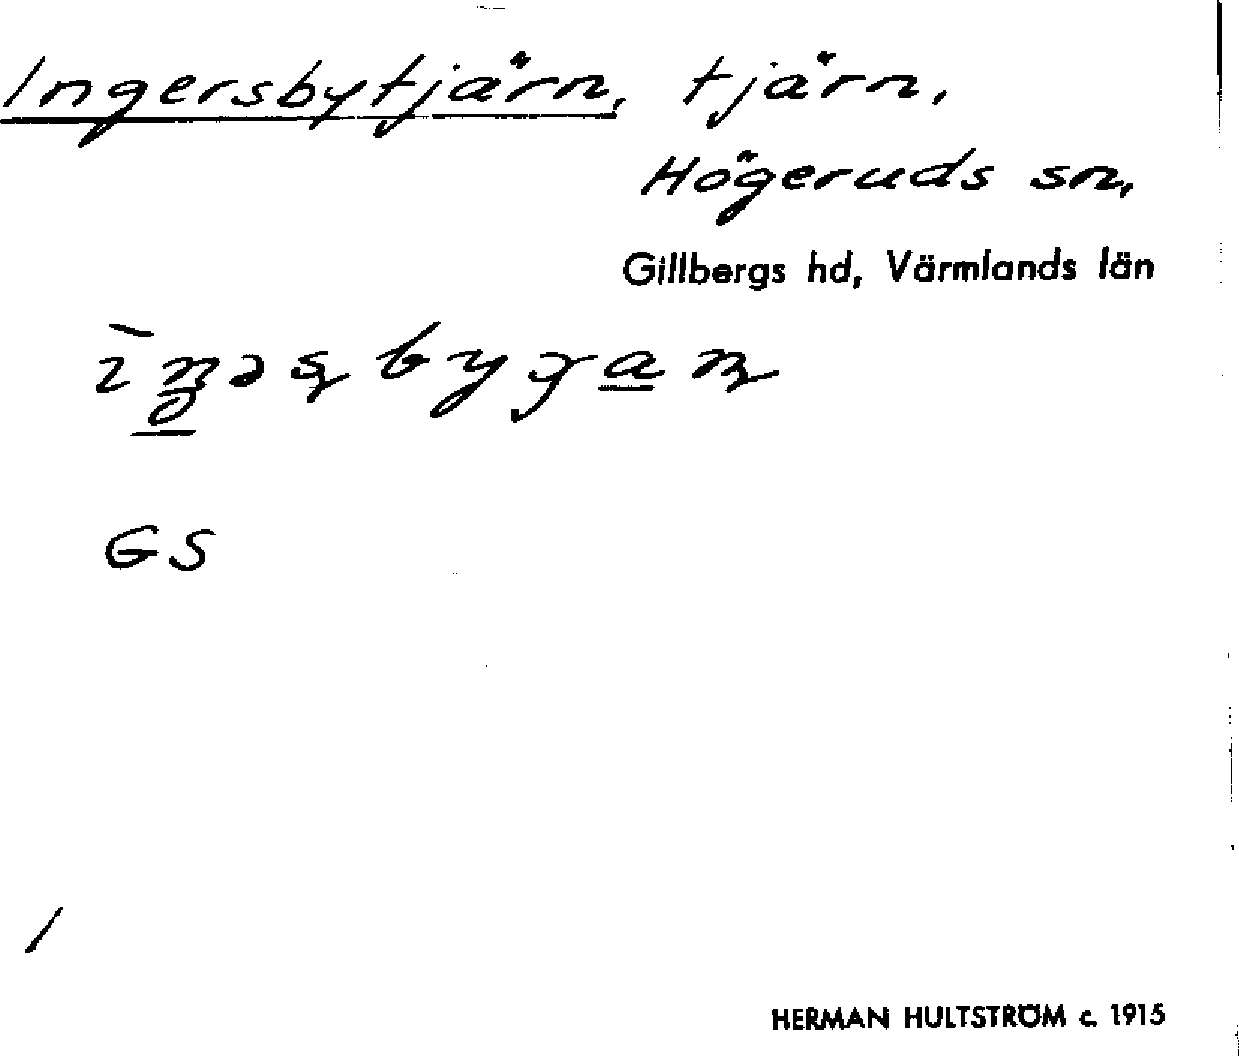 Ingersbytjärn, tjärn,
Högeruds sn,
Gillbergs hd, Värmlands län
GS
/
HERMAN HULTSTRÖM c. 1915